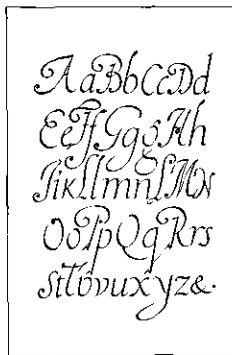 AaBbCcDd
EeFfGggHh
JikLlmnſMN
OoPpQqRrs
stTtovuxyz&.